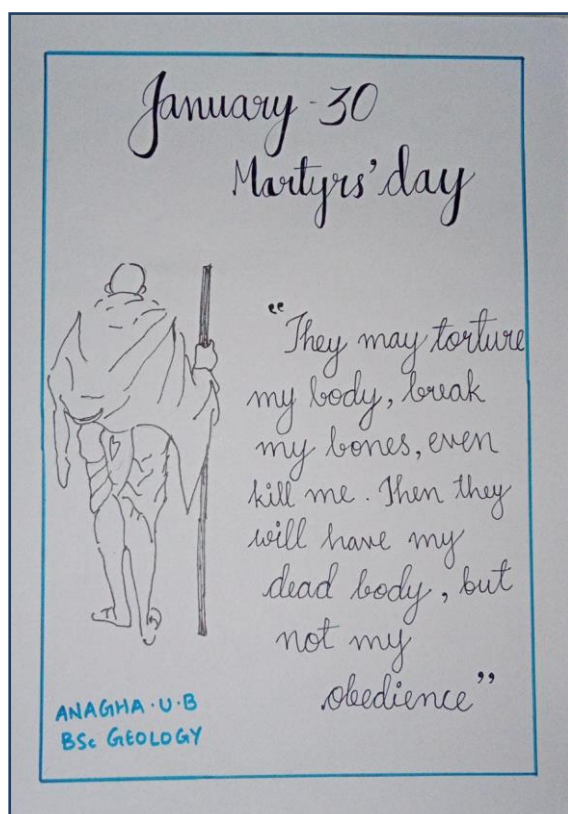 January - 30
Martyrs' day
"They may torture
my body, break
my bones, even
kill me. Then they
will have my
dead body, but
not my
obedience"
ANAGHA.U.B
BSc GEOLOGY